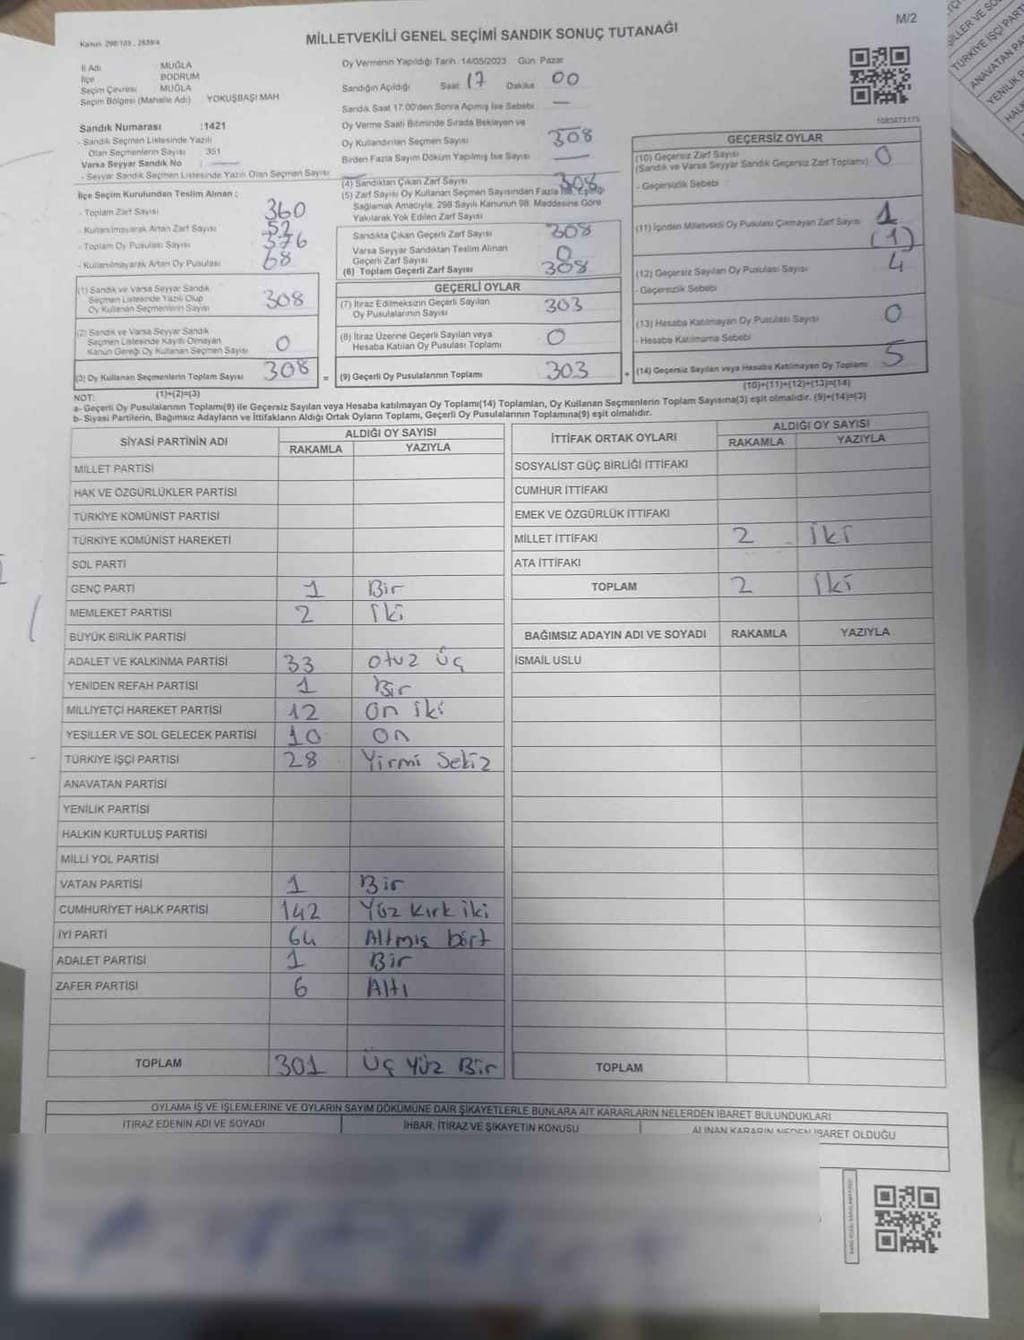 M/2
Kanun 298/105, 2839/4
MİLLETVEKİLİ GENEL SEÇİMİ SANDIK SONUÇ TUTANAĞI
İl Adı MUĞLA
İlçe BODRUM
Seçim Çevresi MUĞLA
Seçim Bölgesi (Mahalle Adı) YOKUŞBAŞI MAH
Sandık Numarası :1421
- Sandık Seçmen Listesinde Yazılı
Olan Seçmenlerin Sayısı : 351
Varsa Seyyar Sandık No : —
- Seyyar Sandık Seçmen Listesinde Yazılı Olan Seçmen Sayısı
İlçe Seçim Kurulundan Teslim Alınan ;
- Toplam Zarf Sayısı 360
- Kullanılmayarak Artan Zarf Sayısı 52
- Toplam Oy Pusulası Sayısı 376
- Kullanılmayarak Artan Oy Pusulası 68
(1) Sandık ve Varsa Seyyar Sandık
Seçmen Listesinde Yazılı Olup
Oy Kullanan Seçmenlerin Sayısı 308
(2) Sandık ve Varsa Seyyar Sandık
Seçmen Listesinde Kayıtlı Olmayan
Kanun Gereği Oy Kullanan Seçmen Sayısı 0
(3) Oy Kullanan Seçmenlerin Toplam Sayısı 308
(1)+(2)=(3)
Oy Vermenin Yapıldığı Tarih :14/05/2023 Gün :Pazar
Sandığın Açıldığı Saat 17 Dakika 00
Sandık Saat 17.00'den Sonra Açılmış İse Sebebi —
Oy Verme Saati Bitiminde Sırada Bekleyen ve
Oy Kullandırılan Seçmen Sayısı 308
Birden Fazla Sayım Döküm Yapılmış İse Sayısı —
(4) Sandıktan Çıkan Zarf Sayısı 308
(5) Zarf Sayısı Oy Kullanan Seçmen Sayısından Fazla İse, Eşitliği
Sağlamak Amacıyla, 298 Sayılı Kanunun 98. Maddesine Göre
Yakılarak Yok Edilen Zarf Sayısı
Sandıkta Çıkan Geçerli Zarf Sayısı 308
Varsa Seyyar Sandıktan Teslim Alınan
Geçerli Zarf Sayısı 0
(6) Toplam Geçerli Zarf Sayısı 308
GEÇERLİ OYLAR
(7) İtiraz Edilmeksizin Geçerli Sayılan
Oy Pusulalarının Sayısı 303
(8) İtiraz Üzerine Geçerli Sayılan veya
Hesaba Katılan Oy Pusulası Toplamı 0
= (9) Geçerli Oy Pusulalarının Toplamı 303
1085873175
GEÇERSİZ OYLAR
(10) Geçersiz Zarf Sayısı
(Sandık ve Varsa Seyyar Sandık Geçersiz Zarf Toplamı) 0
- Geçersizlik Sebebi
(11) İçinden Milletvekili Oy Pusulası Çıkmayan Zarf Sayısı 1
(1)
(12) Geçersiz Sayılan Oy Pusulası Sayısı 4
- Geçersizlik Sebebi
(13) Hesaba Katılmayan Oy Pusulası Sayısı 0
- Hesaba Katılmama Sebebi
+ (14) Geçersiz Sayılan veya Hesaba Katılmayan Oy Toplamı 5
(10)+(11)+(12)+(13)=(14)
NOT:
a- Geçerli Oy Pusulalarının Toplamı(9) ile Geçersiz Sayılan veya Hesaba katılmayan Oy Toplamı(14) Toplamları, Oy Kullanan Seçmenlerin Toplam Sayısına(3) eşit olmalıdır. (9)+(14)=(3)
b- Siyasi Partilerin, Bağımsız Adayların ve İttifakların Aldığı Ortak Oyların Toplamı, Geçerli Oy Pusulalarının Toplamına(9) eşit olmalıdır.
SİYASİ PARTİNİN ADI ALDIĞI OY SAYISI
RAKAMLA YAZIYLA
MİLLET PARTİSİ
HAK VE ÖZGÜRLÜKLER PARTİSİ
TÜRKİYE KOMÜNİST PARTİSİ
TÜRKİYE KOMÜNİST HAREKETİ
SOL PARTİ
GENÇ PARTİ 1 Bir
MEMLEKET PARTİSİ 2 iki
BÜYÜK BİRLİK PARTİSİ
ADALET VE KALKINMA PARTİSİ 33 otuz üç
YENİDEN REFAH PARTİSİ 1 Bir
MİLLİYETÇİ HAREKET PARTİSİ 12 on iki
YEŞİLLER VE SOL GELECEK PARTİSİ 10 on
TÜRKİYE İŞÇİ PARTİSİ 28 Yirmi Sekiz
ANAVATAN PARTİSİ
YENİLİK PARTİSİ
HALKIN KURTULUŞ PARTİSİ
MİLLİ YOL PARTİSİ
VATAN PARTİSİ 1 Bir
CUMHURİYET HALK PARTİSİ 142 Yüz kırk iki
İYİ PARTİ 64 Altmış dört
ADALET PARTİSİ 1 Bir
ZAFER PARTİSİ 6 Altı
TOPLAM 301 Üç Yüz Bir
İTTİFAK ORTAK OYLARI ALDIĞI OY SAYISI
RAKAMLA YAZIYLA
SOSYALİST GÜÇ BİRLİĞİ İTTİFAKI
CUMHUR İTTİFAKI
EMEK VE ÖZGÜRLÜK İTTİFAKI
MİLLET İTTİFAKI 2 iki
ATA İTTİFAKI
TOPLAM 2 iki
BAĞIMSIZ ADAYIN ADI VE SOYADI RAKAMLA YAZIYLA
İSMAİL USLU
TOPLAM
OYLAMA İŞ VE İŞLEMLERİNE VE OYLARIN SAYIM DÖKÜMÜNE DAİR ŞİKAYETLERLE BUNLARA AİT KARARLARIN NELERDEN İBARET BULUNDUKLARI
İTİRAZ EDENİN ADI VE SOYADI İHBAR, İTİRAZ VE ŞİKAYETİN KONUSU ALINAN KARARIN NEDEN İBARET OLDUĞU
TÜRKİYE İŞÇİ PARTİ
ANAVATAN PA
YENİLİK P